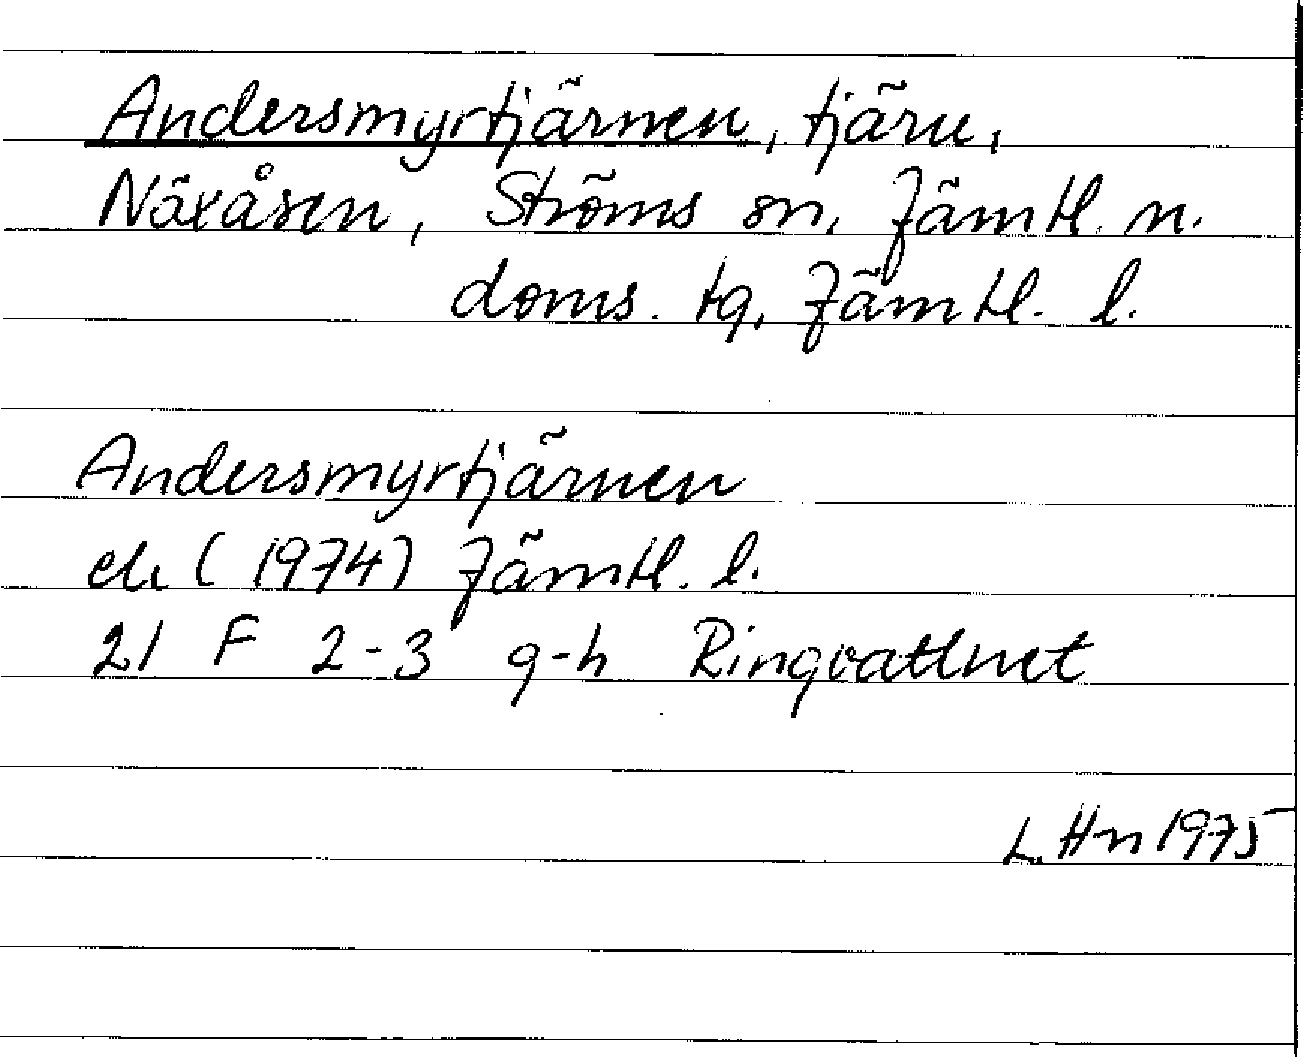 Andersmyrtjärnen, tjärn,
Näxåsen, Ströms sn, Jämtl. n.
doms. tg, Jämtl. l.
Andersmyrtjärnen
ek (1974) Jämtl. l.
21 F 2-3 g-h Ringvattnet
L. Hn 1975